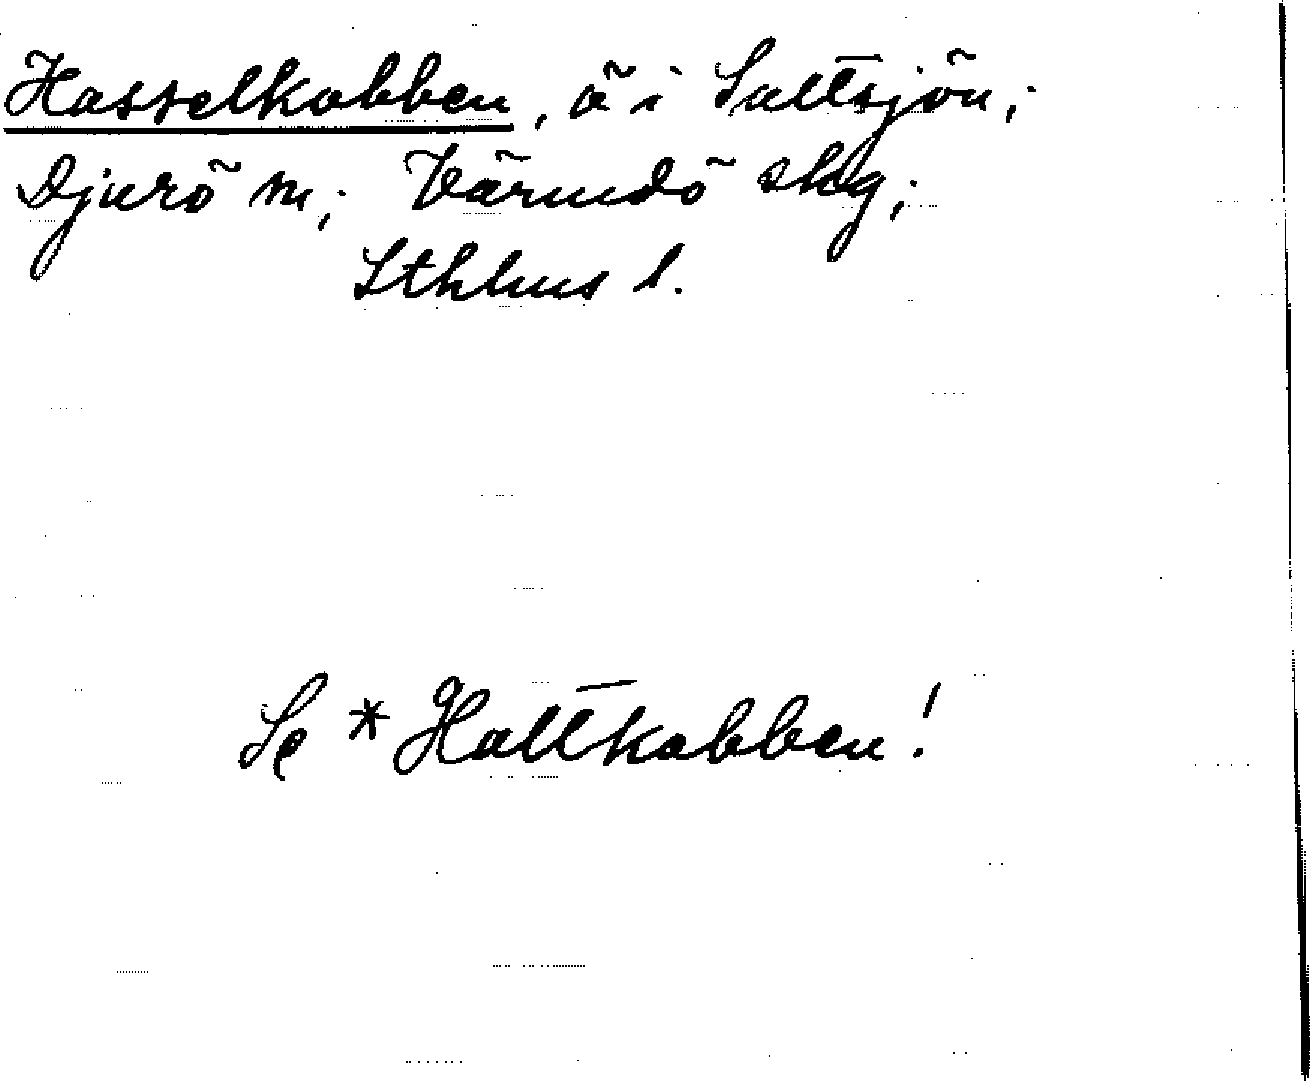 Hasselkobben, ö i Saltsjön;
Djurö sn; Värmdö skg;
Sthlms l.
Se * Hattkobben!